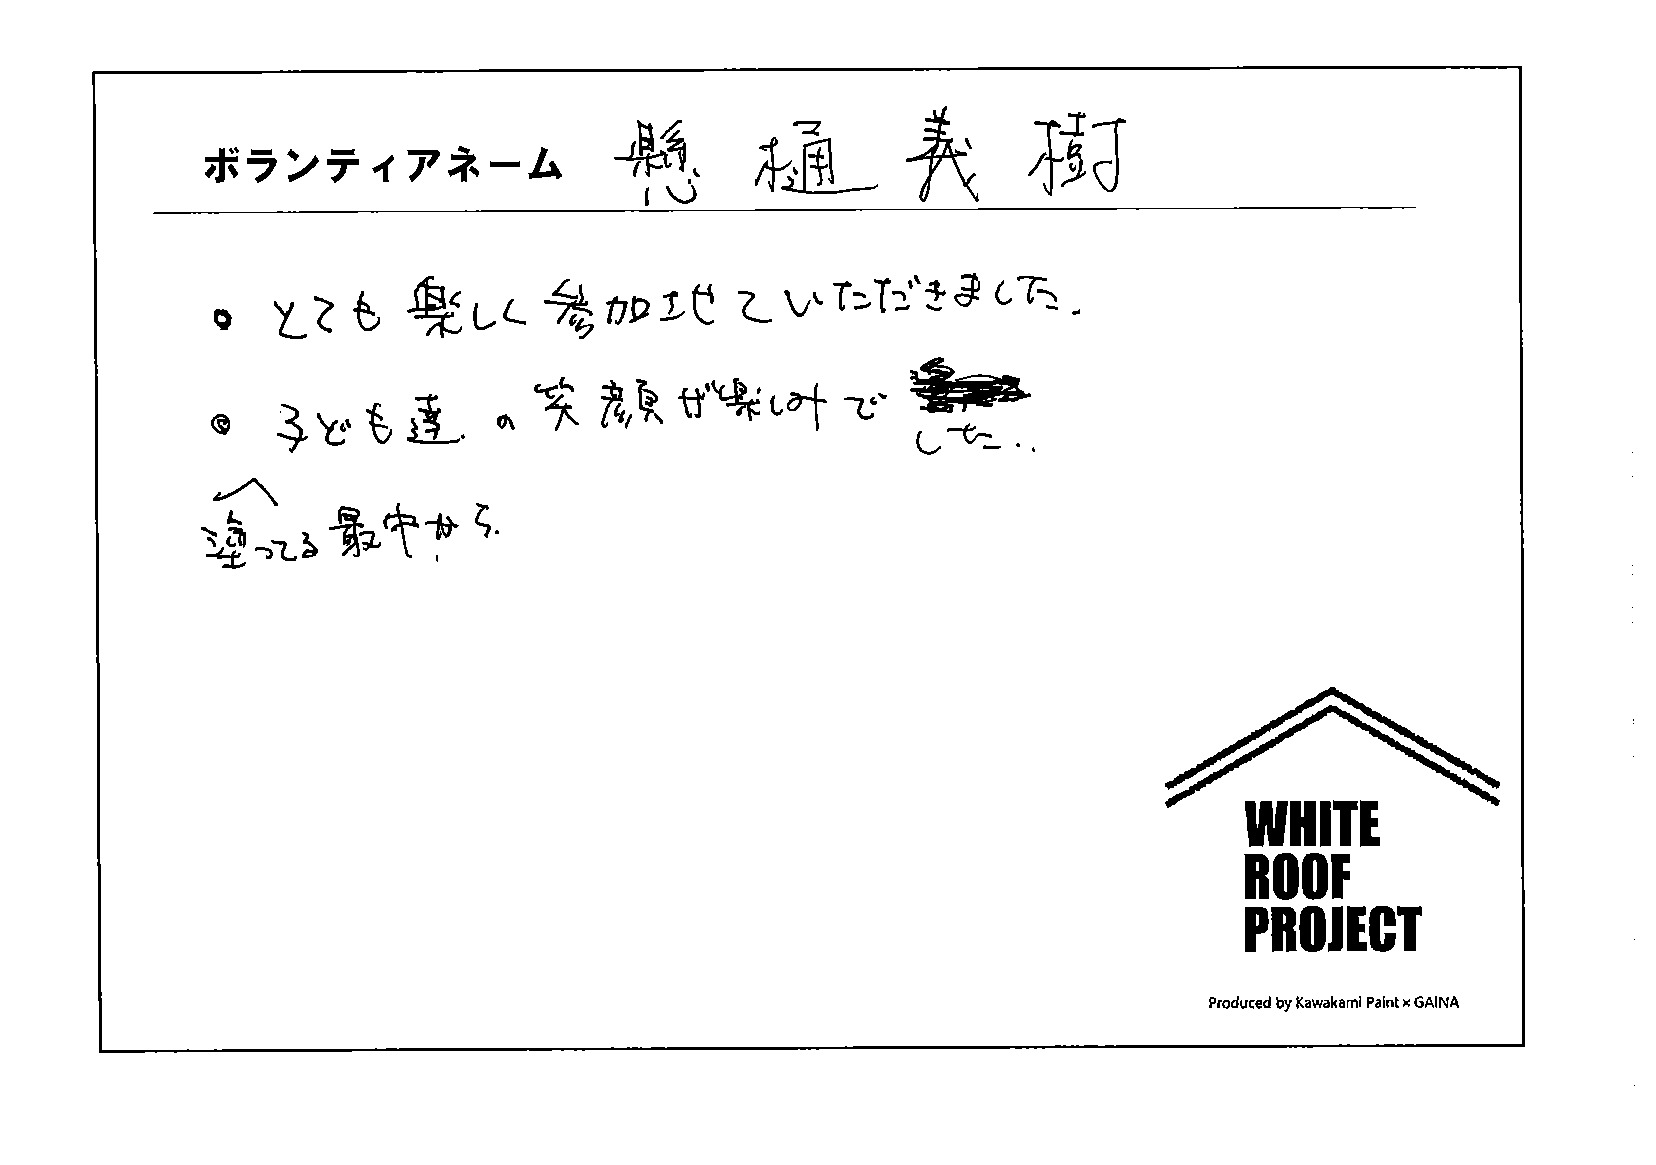 ボランティアネーム 懸樋義樹
• とても楽しく参加させていただきました.
◎ 子ども達の笑顔が楽しみで
した..
塗ってる最中から.
WHITE
ROOF
PROJECT
Produced by Kawakami Paint × GAINA